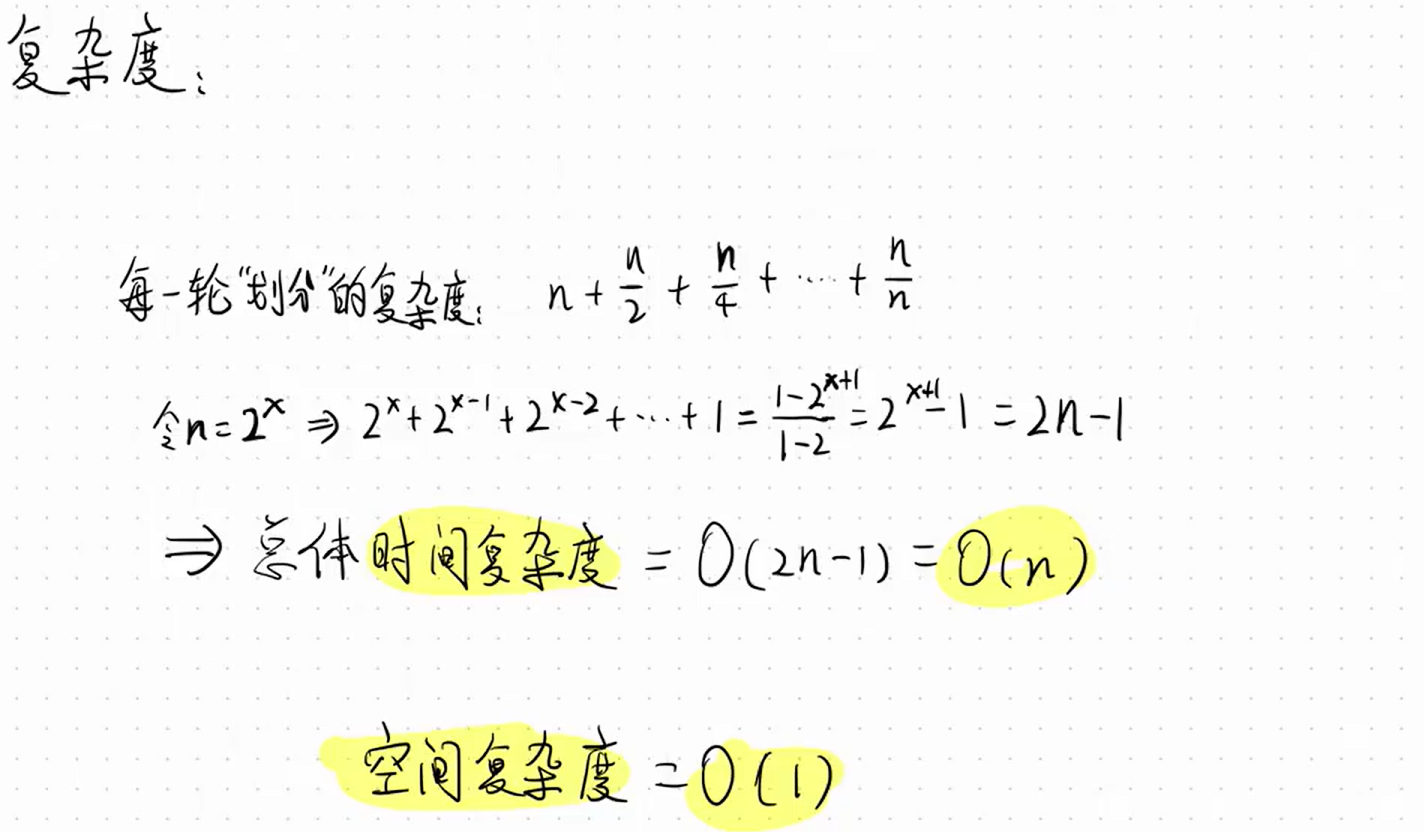 复杂度：
每一轮“划分”的复杂度： n + n/2 + n/4 + … + n/n
令n=2^x ⇒ 2^x + 2^(x-1) + 2^(x-2) + … + 1 = (1-2^(x+1))/(1-2) = 2^(x+1) - 1 = 2n-1
⇒ 总体时间复杂度 = O(2n-1) = O(n)
空间复杂度 = O(1)